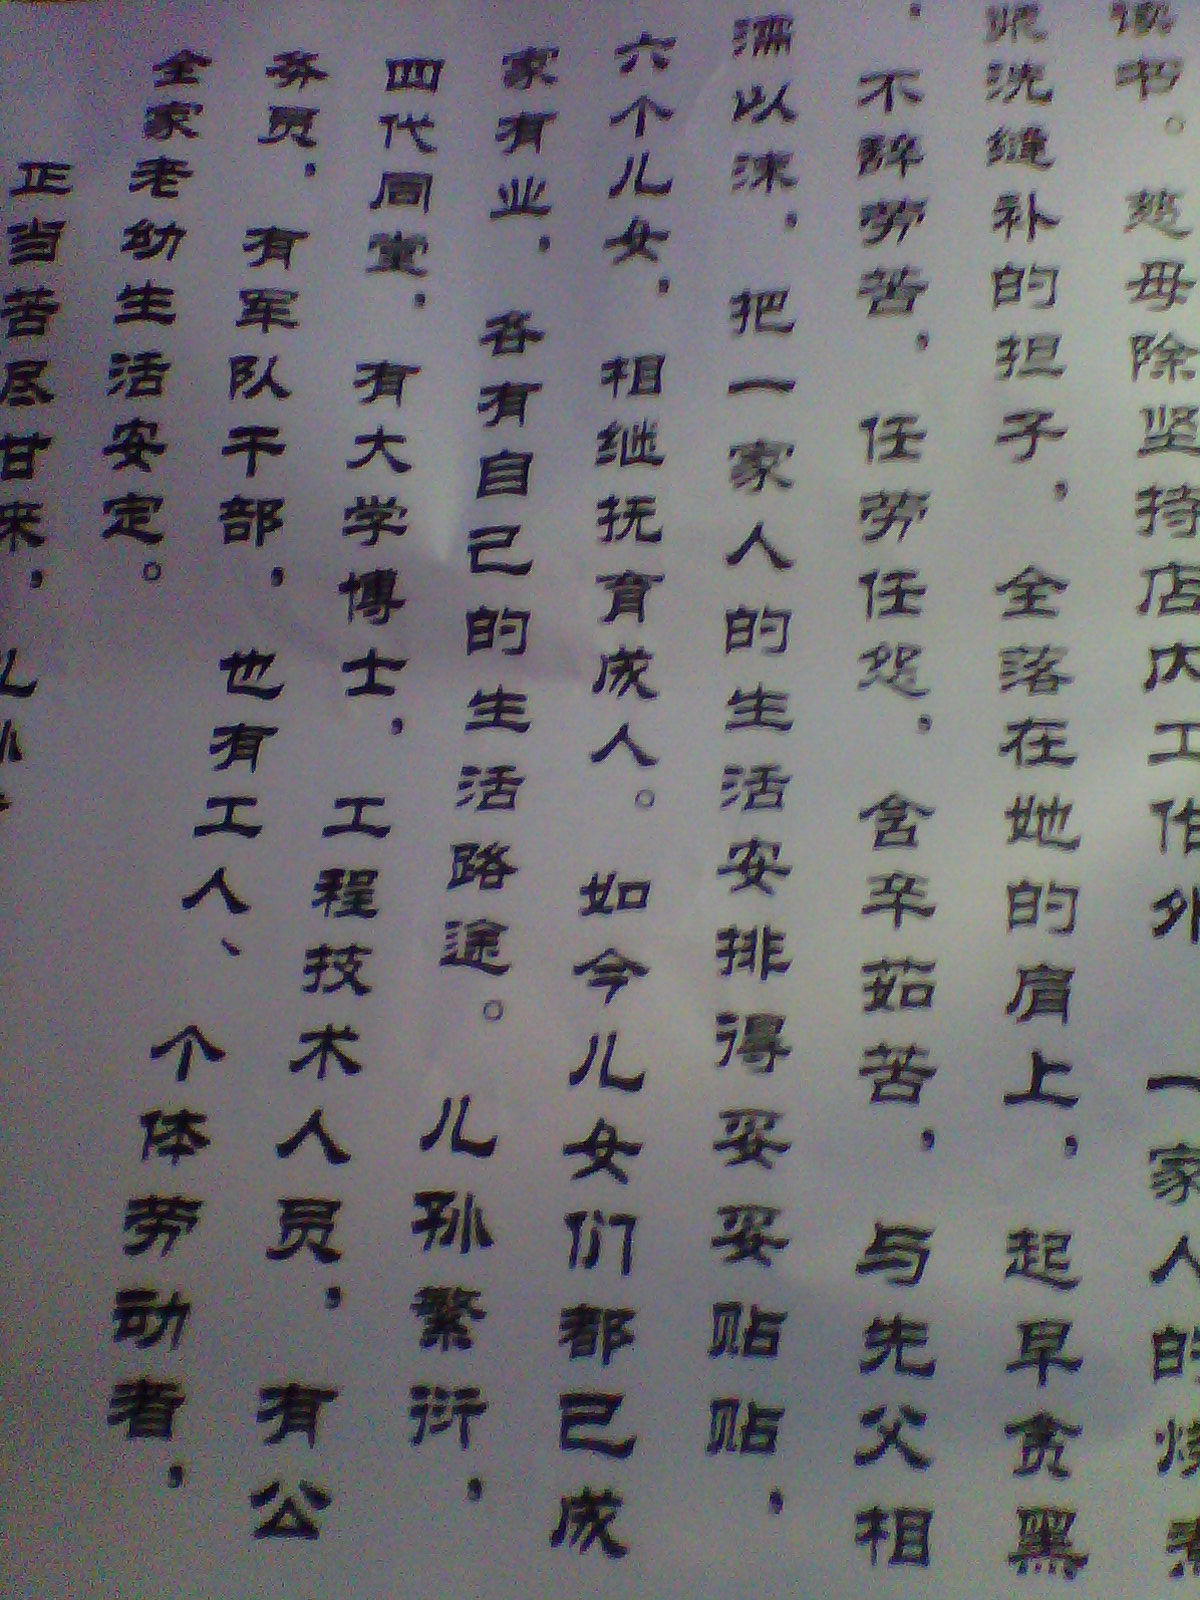 读书。慈母除坚持店内工作外，一家人的烧煮
浆洗缝补的担子，全落在她的肩上，起早贪黑
，不辞劳苦，任劳任怨，含辛茹苦，与先父相
濡以沫，把一家人的生活安排得妥妥贴贴，
六个儿女，相继抚育成人。如今儿女们都已成
家有业，各有自己的生活路途。儿孙繁衍，
四代同堂，有大学博士，工程技术人员，有公
务员，有军队干部，也有工人、个体劳动者，
全家老幼生活安定。
正当苦尽甘来，儿孙